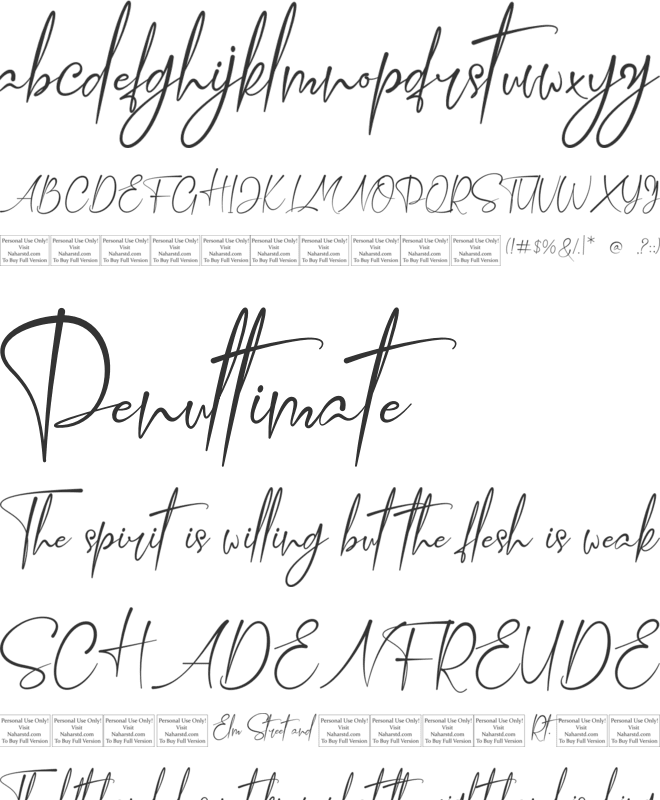 abcdefghijklmnopqrstuvwxyz
ABCDEFGHIJKLMNOPQRSTUVWXYZ
Personal Use Only! Visit Naharstd.com To Buy Full Version Personal Use Only! Visit Naharstd.com To Buy Full Version Personal Use Only! Visit Naharstd.com To Buy Full Version Personal Use Only! Visit Naharstd.com To Buy Full Version Personal Use Only! Visit Naharstd.com To Buy Full Version Personal Use Only! Visit Naharstd.com To Buy Full Version Personal Use Only! Visit Naharstd.com To Buy Full Version Personal Use Only! Visit Naharstd.com To Buy Full Version Personal Use Only! Visit Naharstd.com To Buy Full Version Personal Use Only! Visit Naharstd.com To Buy Full Version (!#$%&/.|* @ .?:;)
Penultimate
The spirit is willing but the flesh is weak
SCHADENFREUDE
Personal Use Only! Visit Naharstd.com To Buy Full Version Personal Use Only! Visit Naharstd.com To Buy Full Version Personal Use Only! Visit Naharstd.com To Buy Full Version Personal Use Only! Visit Naharstd.com To Buy Full Version Elm Street and Personal Use Only! Visit Naharstd.com To Buy Full Version Personal Use Only! Visit Naharstd.com To Buy Full Version Personal Use Only! Visit Naharstd.com To Buy Full Version Personal Use Only! Visit Naharstd.com To Buy Full Version Rt. Personal Use Only! Visit Naharstd.com To Buy Full Version Personal Use Only! Visit Naharstd.com To Buy Full Version